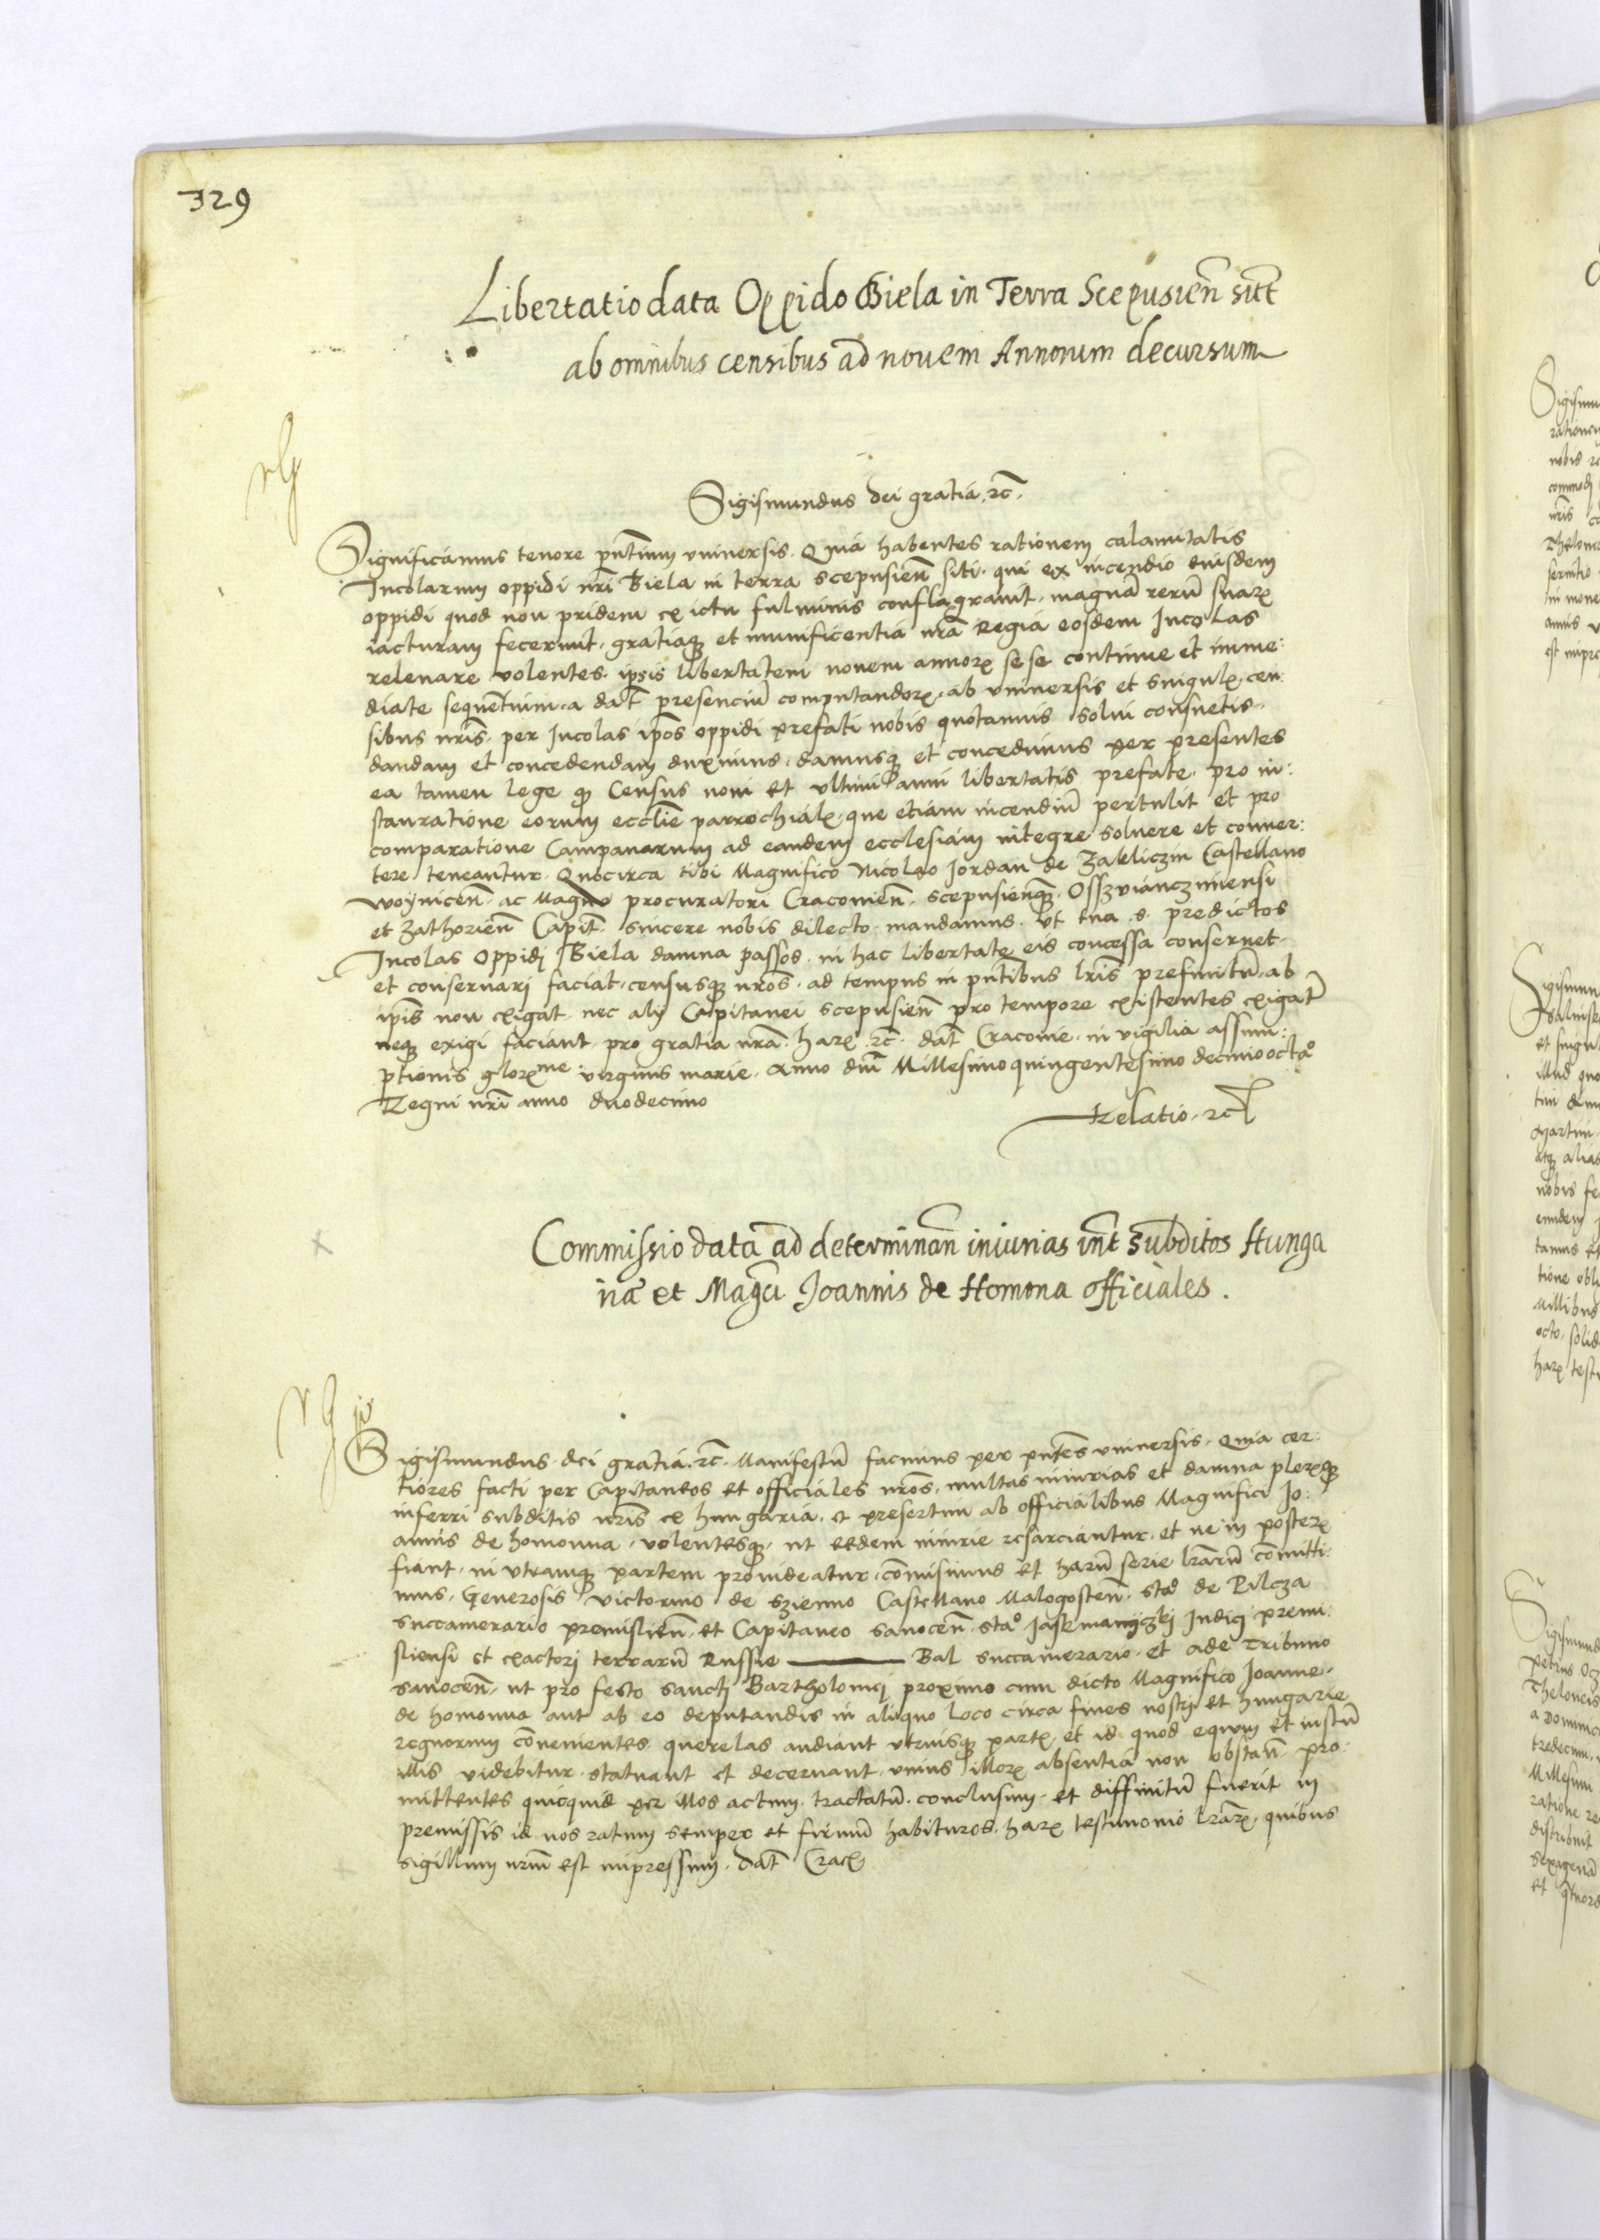 329
Libertatio data Oppido Biela in Terra Scepusień sitē
ab omnibus censibus ad nouem Annorum decursum
Sigismundus dei gratia, rc̄.
Significamus tenore pn̄tium vniuersis. Quia habentes rationem calamitatis
Incolarum oppidi nr̄i Biela in terra scepusień siti. qui ex incendio eiusdem
oppidi quod non pridem ex ictu fulminis conflagrauit. magnā rerū suarꝝ
iacturam fecerunt. gratiaqꝫ et munificentia nr̄a Regia eosdem Incolas
releuare volentes. ipsis libertatem nouem annorꝝ sese continue et imme:
diate sequētium. a dat̄ presenciū computandorꝝ. ab vniuersis et singulꝭ cen:
sibus nr̄is. per Incolas ip̄os oppidi prefati nobis quotannis solui consuetis.
dandam et concedendam duximus. damusqꝫ et concedimus per presentes
ea tamen lege qꝫ Census noui et vltimi anni libertatis prefate. pro in:
stauratione eorum eccl̄ie parrochialꝭ. que etiam incendiū pertulit et pro
comparatione Campanarum ad eandem ecclesiam integre soluere et conuer:
tere teneantur. Quocirca tibi Magnifico Nicolao Jordan de Zakliczin Castellano
woynicen̄. ac Magno procuratori Cracouien̄. scepusienqꝫ. Osszwiancziminensi
et Zathorien̄ Capit̄. sincere nobis dilecto. mandamus. vt tua .s. predictos
Incolas Oppidi Biela damna passos. in hac libertate eis concessa conseruet.
et conseruari faciat. censusqꝫ nr̄os. ad tempus in pn̄tibus lr̄is prefinitū. ab
ip̄is non exigat. nec alij Capitanei scepusien̄ pro tempore existentes exigāt
neqꝫ exigi faciant. pro gratia nr̄a. harꝝ rc̄. dat̄ Cracouie. in vigilia assum:
ptionis glorꝫme virginis marie. Anno dn̄i Millesimo quingentesimo decimooctāo
Regni nr̄i anno duodecimo
Relatio. rc̄
Commissio data ad determinan̄ iniurias int̄ subditos Hunga
riā et Magci Joannis de Homona officiales.
Sigismundus. dei gratia. rc̄. Manifestū facimus per pn̄tes vniuersis. Quia cer:
tiores facti per Capitaneos et officiales nr̄os. multas iniurias et damna plerꝫqꝫ
inferri subditis nr̄is ex hungaria. et presertim ab officialibus Magnifici Jo:
annis de homonna. volentesqꝫ. ut eedem iniurie resarciantur. et ne in posterꝝ
fiant. in vtramqꝫ partem prouideatur. com̄isimus et harū serie lr̄arū com̄itti:
mus. Generosis Victorino de Szienno Castellano Malogosten̄. sta᷒ de Pilcza
succamerario premislien̄. et Capitaneo sanocen̄. stao Jaskmaniczki Judici premi:
sliensi et exactori terrarū Russie ——— Bal succamerario. et Ade Tribuno
sanocen̄. ut pro festo sancti Bartholomei proximo cum dicto Magnifico Joanne.
de homonna aut ab eo deputandis in aliquo loco circa fines nostri et hungarie
regnorum con̄uenientes. querelas audiant vtriusqꝫ partꝭ. et id. quod equum et iustū
illis videbitur. statuant et decernant. vnius illorꝝ absentia non obstan̄. pro:
mittentes quicquid per illos actum. tractatū. conclusum. et diffinitū fuerit in
premissis id nos ratum semper et firmū habituros. harꝝ testimonio lr̄arꝝ. quibus
sigillum nr̄m est impressum. dat̄ Crac̄